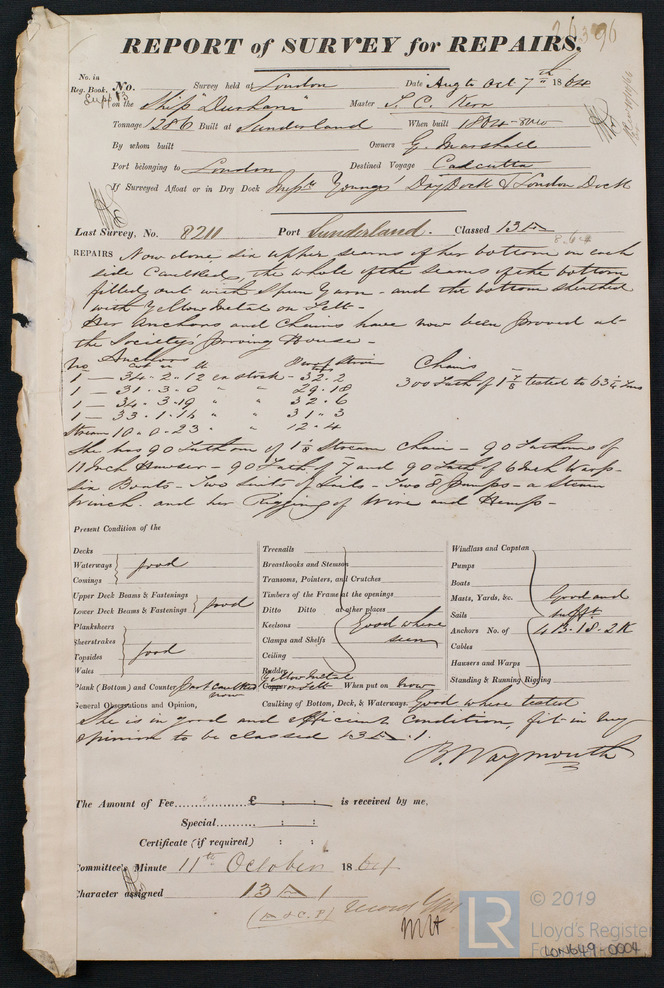 REPORT of SURVEY for REPAIRS.
No. in
Reg. Book. No. Survey held at London Date Augt to Oct 7th 1864
Supt 13 on the Ship "Durham" Master T. C. Kerr
Tonnage 1386 Built at Sunderland When built 1864
By whom built Owners G. Marshall
Port belonging to London Destined Voyage Calcutta
If Surveyed Afloat or in Dry Dock Messrs Youngs' Dry Dock & London Dock
Last Survey, No. 8211 Port Sunderland. Classed 13 A
8.64
REPAIRS Now done six upper seams of her bottom on each
side Caulked, the whole of the seams of the bottom
filled out with Spun Yarn - and the bottom sheathed
with Yellow Metal on Felt -
Her Anchors and Chains have now been proved at
the Society's proving House -
No Anchors Proof Strain Chains
1 — 34 - 2 - 12 in stock - 32 - 2 300 Fath of 1 7/8 tested to 63 1/4 Tons
1 — 31 - 3 - 0 " " 29 - 18
1 — 34 - 3 - 19 " " 32 - 6
1 — 33 - 1 - 14 " " 31 - 3
Stream 10 - 0 - 23 " " 12 - 4
She has 90 Fathoms of 1 1/8 Stream Chain - 90 Fathoms of
11 Inch Hawser - 90 Fath of 7 and 90 Fath of 6 Inch Warp -
six Boats - Two Suits of Sails - Two 8 pumps - a Steam
Winch. and her Rigging of Wire and Hemp -
Present Condition of the
Decks
Waterways } good
Comings
Upper Deck Beams & Fastenings
Lower Deck Beams & Fastenings } good
Planksheers
Sheerstrakes } good
Topsides
Wales
Plank (Bottom) and Counter part caulked now
Treenails
Breasthooks and Stemson
Transoms, Pointers, and Crutches
Timbers of the Frame at the openings
Ditto Ditto at other places
Keelsons Good where
Clamps and Shelfs seen
Ceiling
Rudder
Yellow Metal
Copper on Felt When put on now
Windlass and Capstan
Pumps
Boats
Masts, Yards, &c. Good and
Sails sufft
Anchors No. of 4 B. 1 S. 2 K
Cables
Hausers and Warps
Standing & Running Rigging
General Observations and Opinion, Caulking of Bottom, Deck, & Waterways. Good where tested
She is in good and efficient condition, fit in my
opinion to be classed 13 A. 1.
B. Waymouth
The Amount of Fee............... £ : : is received by me.
Special.......... : :
Certificate (if required) : :
Committee's Minute 11th October 1864
Character assigned 13 A 1
MH
© 2019
LR
Lloyd's Register
LON649-0004